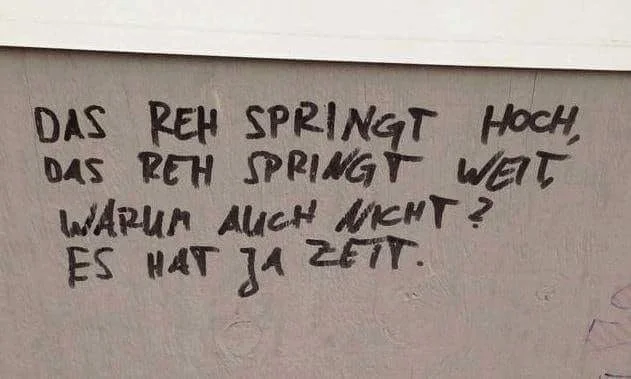 DAS REH SPRINGT HOCH,
DAS REH SPRINGT WEIT,
WARUM AUCH NICHT?
ES HAT JA ZEIT.